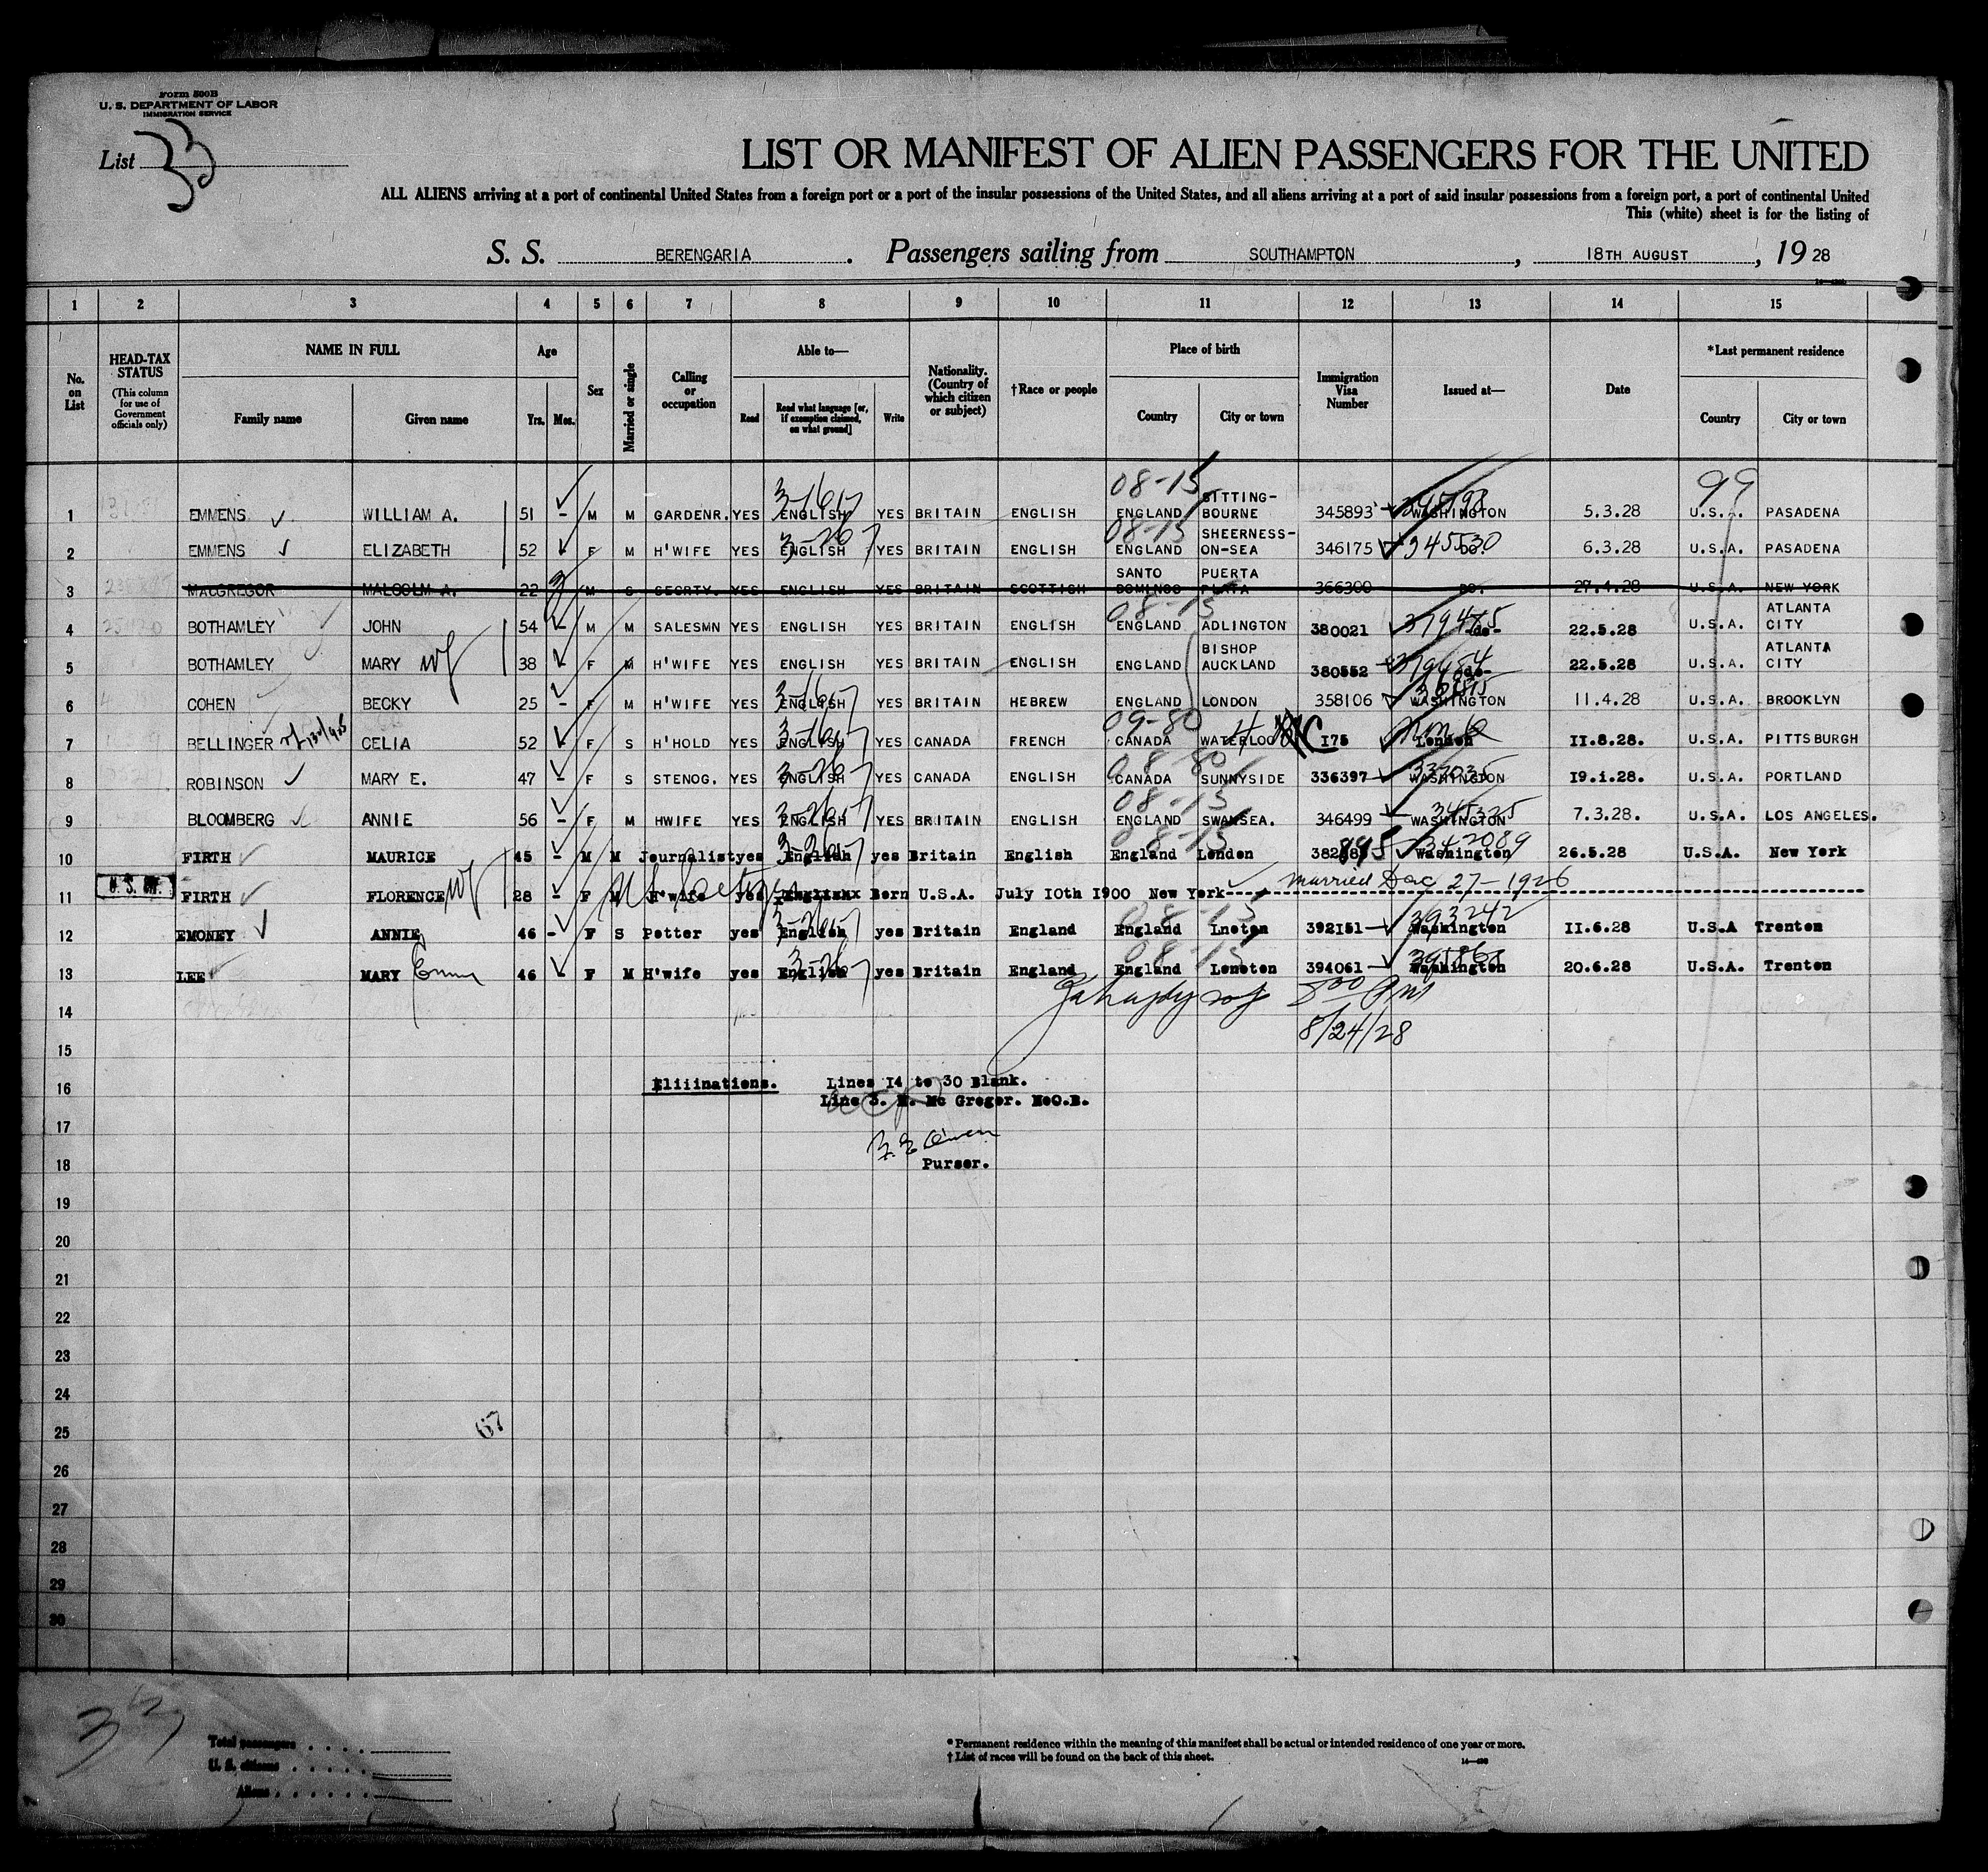 Form 500B
U. S. DEPARTMENT OF LABOR
IMMIGRATION SERVICE
List 33
LIST OR MANIFEST OF ALIEN PASSENGERS FOR THE UNITED
ALL ALIENS arriving at a port of continental United States from a foreign port or a port of the insular possessions of the United States, and all aliens arriving at a port of said insular possessions from a foreign port, a port of continental United
This (white) sheet is for the listing of
S. S. BERENGARIA. Passengers sailing from SOUTHAMPTON, 18TH AUGUST, 1928
1 2 3 4 5 6 7 8 9 10 11 12 13 14 15
No. on List
HEAD-TAX STATUS (This column for use of Government officials only)
NAME IN FULL Family name Given name
Age Yrs. Mos.
Sex
Married or single
Calling or occupation
Able to— Read Read what language [or, if exemption claimed, on what ground] Write
Nationality. (Country of which citizen or subject)
†Race or people
Place of birth Country City or town
Immigration Visa Number
Issued at—
Date
*Last permanent residence Country City or town
1 EMMENS WILLIAM A. 51 - M M GARDENR. YES ENGLISH YES BRITAIN ENGLISH ENGLAND SITTING-BOURNE 345893 WASHINGTON 5.3.28 U.S.A. PASADENA
08-15 99
2 EMMENS ELIZABETH 52 F M H'WIFE YES ENGLISH YES BRITAIN ENGLISH ENGLAND SHEERNESS-ON-SEA 346175 DO. 345530 6.3.28 U.S.A. PASADENA
3 MACGREGOR MALCOLM A. 22 M S SECRTY. YES ENGLISH YES BRITAIN SCOTTISH SANTO DOMINGO PUERTA PLATA 366300 DO. 27.4.28 U.S.A. NEW YORK
4 BOTHAMLEY JOHN 54 - M M SALESMN YES ENGLISH YES BRITAIN ENGLISH ENGLAND ADLINGTON 380021 -do- 379475 22.5.28 U.S.A. ATLANTA CITY
5 BOTHAMLEY MARY wf 38 - F M H'WIFE YES ENGLISH YES BRITAIN ENGLISH ENGLAND BISHOP AUCKLAND 380552 -do- 22.5.28 U.S.A. ATLANTA CITY
6 COHEN BECKY 25 - F M H'WIFE YES ENGLISH YES BRITAIN HEBREW ENGLAND LONDON 358106 WASHINGTON 11.4.28 U.S.A. BROOKLYN
7 BELLINGER CELIA 52 - F S H'HOLD YES ENGLISH YES CANADA FRENCH CANADA WATERLOO 175 London 11.8.28. U.S.A. PITTSBURGH
09-80
8 ROBINSON MARY E. 47 - F S STENOG. YES ENGLISH YES CANADA ENGLISH CANADA SUNNYSIDE 336397 WASHINGTON 19.1.28. U.S.A. PORTLAND
08-80
9 BLOOMBERG ANNIE 56 - F M HWIFE YES ENGLISH YES BRITAIN ENGLISH ENGLAND SWANSEA. 346499 WASHINGTON 345325 7.3.28. U.S.A. LOS ANGELES.
08-15
10 FIRTH MAURICE 45 - M M Journalist yes English yes Britain English England London Washington 26.5.28 U.S.A. New York
11 FIRTH FLORENCE wf 28 - F M H'wife yes Born U.S.A. July 10th 1900 New York married Dec 27-1926
12 EMONEY ANNIE 46 - F S Potter yes English yes Britain England England Lneton 392151 Washington 393242 11.6.28 U.S.A Trenton
13 LEE MARY Emm 46 - F M H'wife yes English yes Britain England England Loneton 394061 Washington 20.6.28 U.S.A. Trenton
14
8/24/28
15
16 Eliiinations. Lines 14 to 30 Blank.
Line 3. M. Mc Gregor. NoO.B.
17
18 Purser.
19
20
21
22
23
24
25 67
26
27
28
29
30
Total passengers
U. S. citizens
Aliens
* Permanent residence within the meaning of this manifest shall be actual or intended residence of one year or more.
† List of races will be found on the back of this sheet.